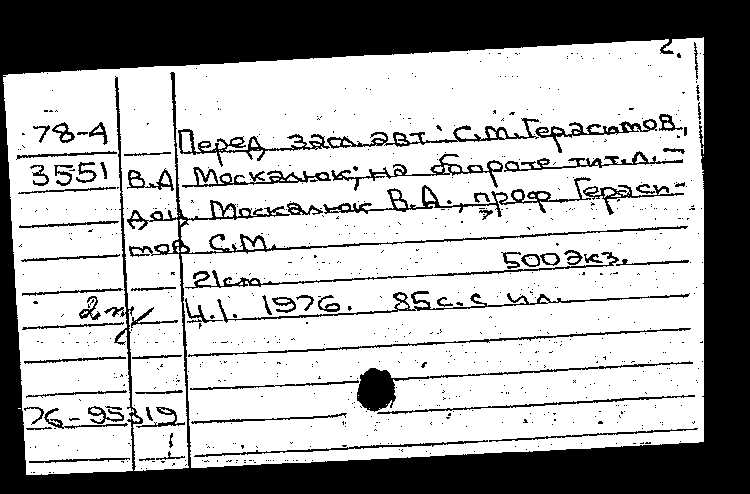 2.
78-4 Перед загл. авт.: С.М. Герасимов,
3551 В.А. Москалюк; на обороте тит. л. =
доц. Москалюк В.А., проф. Гераси-
мов С.М.
21 см. 500 экз.
2 т/ Ч.1. 1976. 85 с. с ил.
76-95319